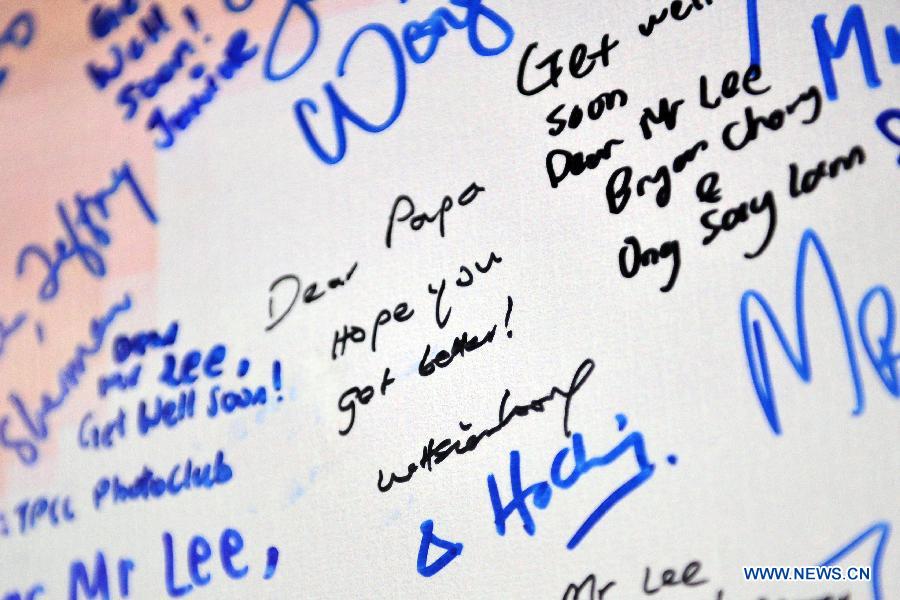 Get
Well
Soon!
Wong
Get well
soon
Dear Mr Lee
Bryan Chong
&
Ong Saxy Lann
Dear Papa
Hope you
got better!
Jeffry
Dear
Mr Lee,
Get Well Soon!
TPCC PhotoClub
& HoChing.
Mr Lee,
Mr Lee
WWW.NEWS.CN